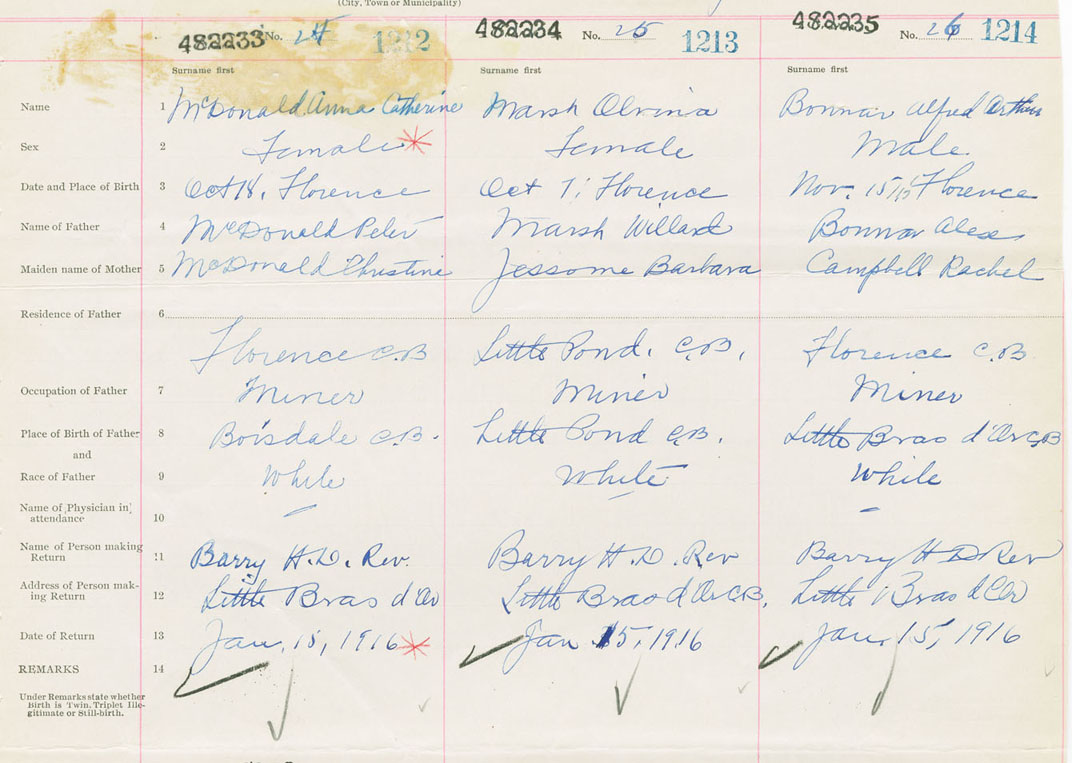 (City, Town or Municipality)
482233 No. 24 1212 482234 No. 25 1213 482235 No. 26 1214
Surname first Surname first Surname first
Name 1 McDonald Anna Catherine Marsh Olvina Bonnar Alfred Arthur
Sex 2 Female * Female Male
Date and Place of Birth 3 Oct 18, Florence Oct 7, Florence Nov. 15/15 Florence
Name of Father 4 McDonald Peter Marsh Willard Bonnar Alex
Maiden name of Mother 5 McDonald Christine Jessome Barbara Campbell Rachel
Residence of Father 6
Florence C.B Little Pond. C.B. Florence C.B.
Occupation of Father 7 Miner Miner Miner
Place of Birth of Father 8 Boisdale C.B. Little Pond C.B. Little Bras d'Or C.B
and
Race of Father 9 White White White
Name of Physician in
attendance 10
Name of Person making
Return 11 Barry H.D. Rev. Barry H.D. Rev Barry H D Rev
Address of Person mak-
ing Return 12 Little Bras d'Or Little Bras d'Or C.B. Little Bras d'Or
Date of Return 13 Jan. 15, 1916 * Jan 15, 1916 Jan. 15, 1916
REMARKS 14
Under Remarks state whether
Birth is Twin, Triplet Ille-
gitimate or Still-birth.